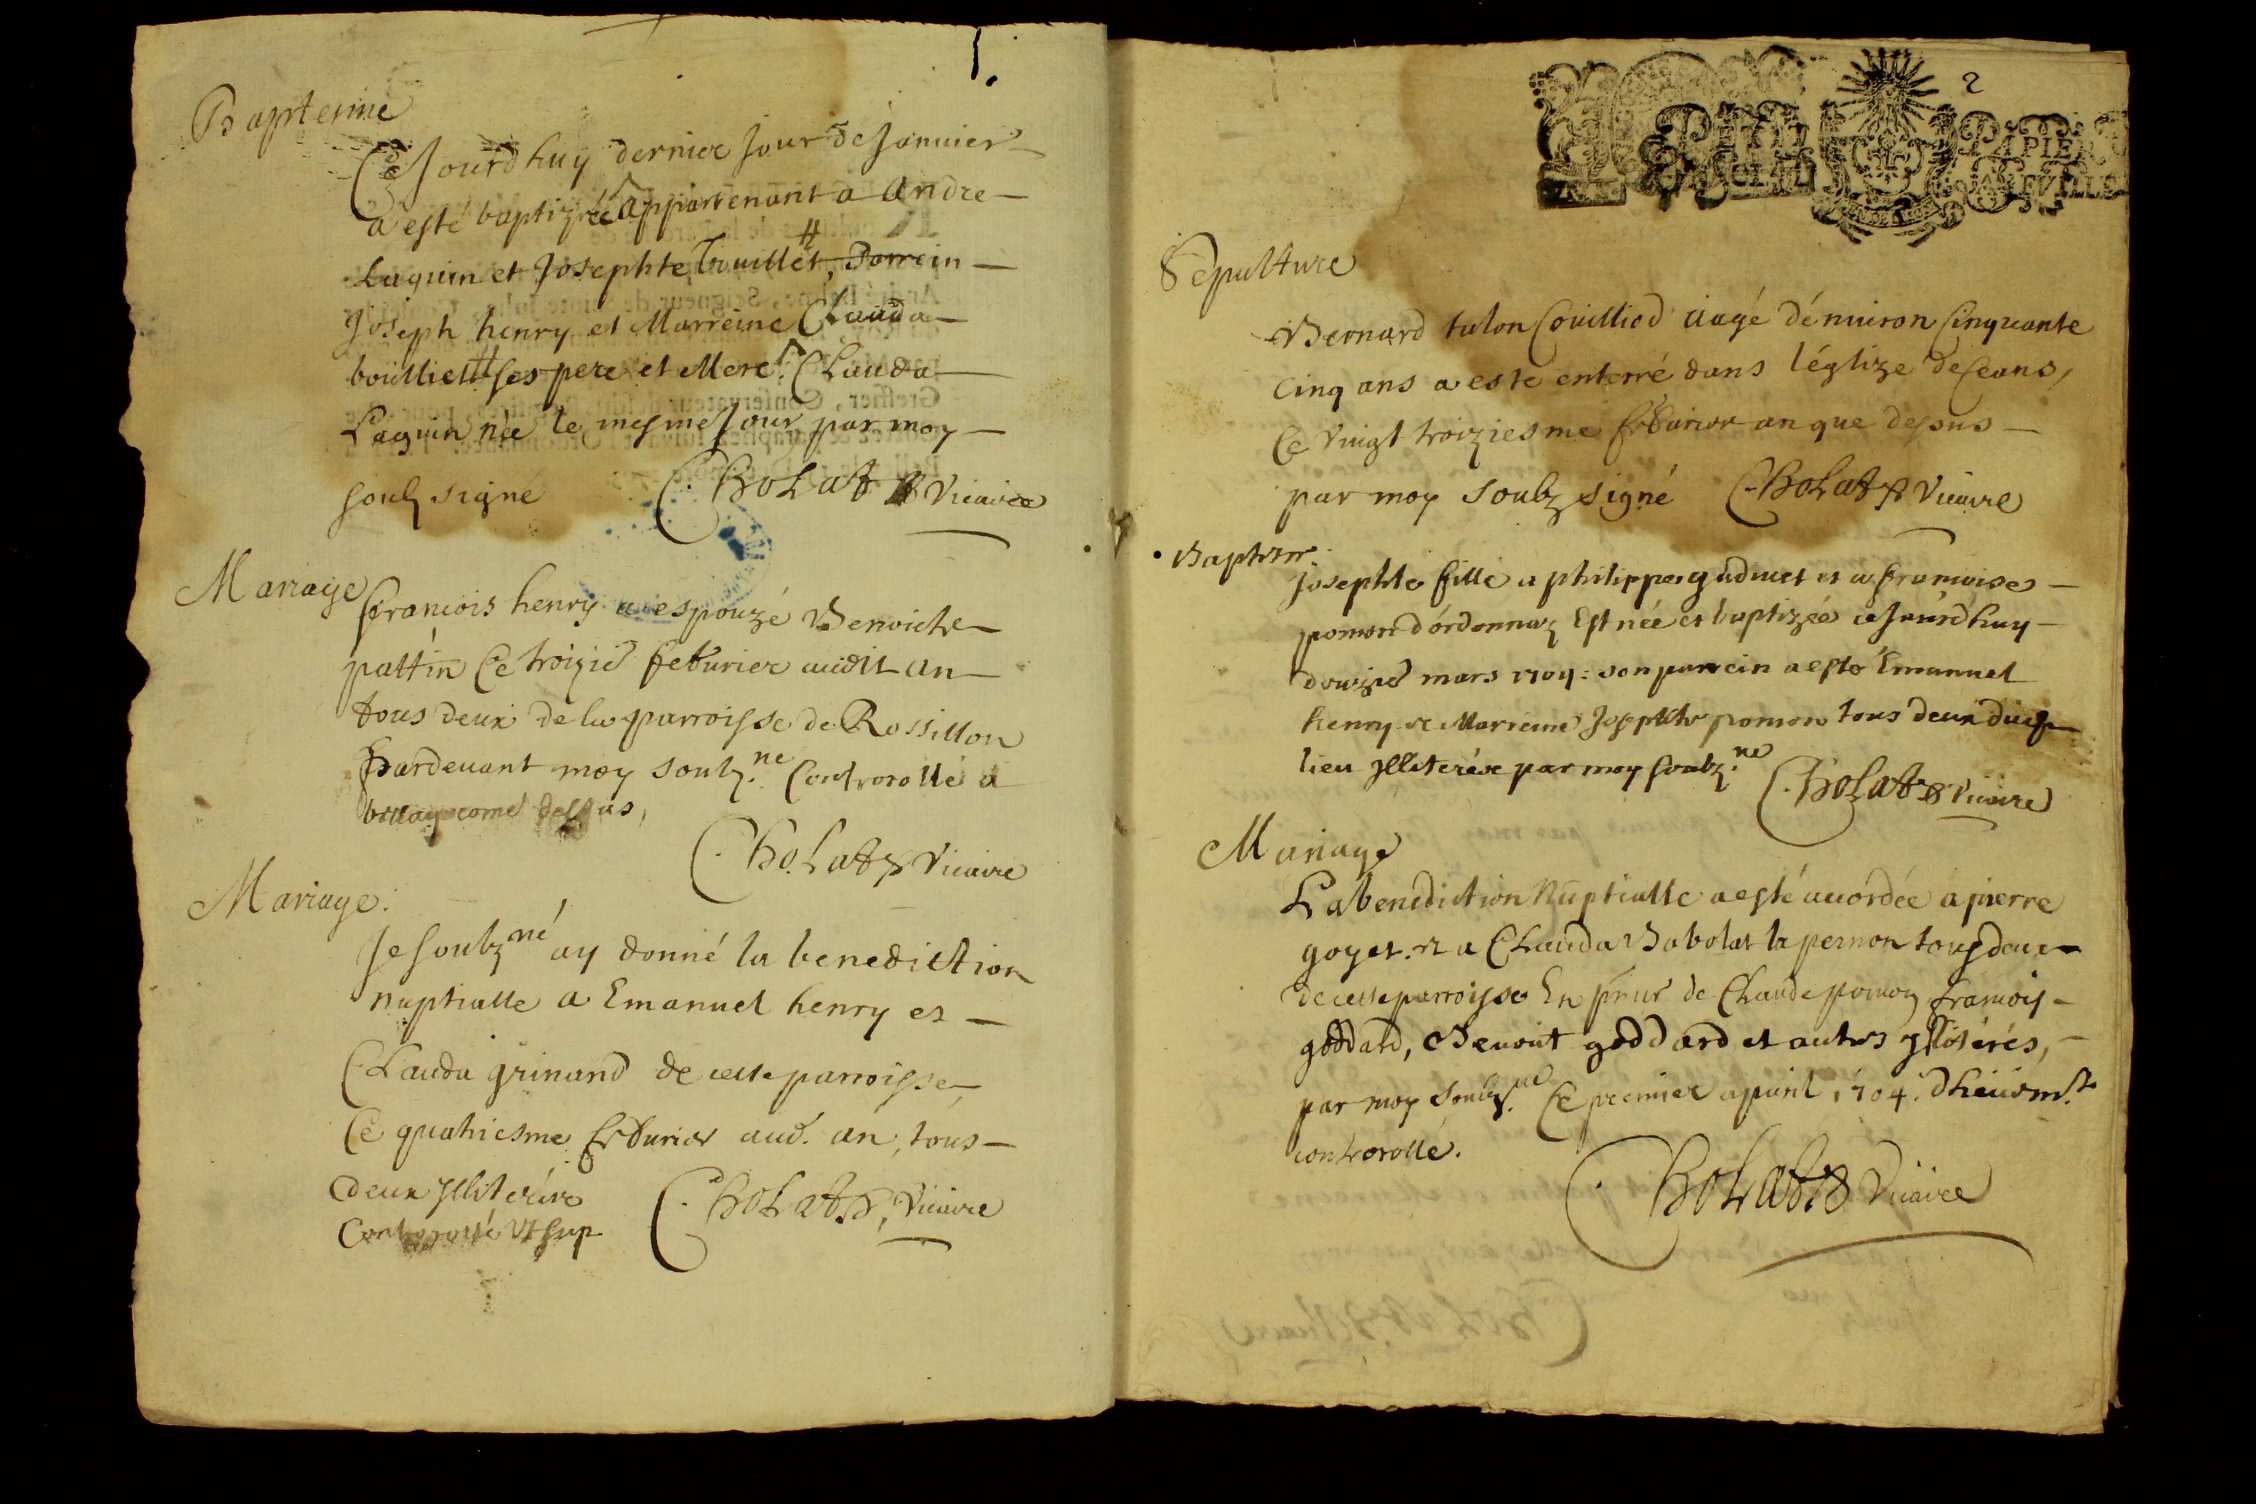 1.
Baptesme
Ce Jourdhuy dernier Jour de Januier
a esté baptizée appartenant a andre
Laguin et Josephte bouillet, Parrein
Joseph henry et Marreine Clauda
bouillet # ses pere et Mere. Clauda
Laguin née le mesme Jour par moy
soulz signé CHolat Vicaire
Mariage
francois henry a espouzé Benoiste
pattin Ce troizie feburier audit an
tous deux de la parroisse de Rossillon
Pardeuant moy soulz.né Controrollé a
come dessus,
CHolat Vicaire
Mariage.
Je soulzné ay donné la benediction
nuptialle a Emanuel henry et
Clauda grinand de cette parroisse
Ce quatriesme feburier aud. an, tous
deux Jlliterére
Controrollé Vt sup
CHolat, Vicaire
2
PETIT PAPIER
Sepulture
Bernard talon Couilliod aagé démiron Cinquante
Cinq ans a este enterré dans léglize de Ceans,
Ce Vingt troiziesme feburier an que dessus
par moy soubz signé CHolat Vicaire
Baptesme.
Josephte fille a philippes gudinet et a francoise
pomon dórdonnaz Est née et baptizée ce Jourdhuy
douzie mars 1704: son parrein a esté Emanuel
henry et Marreine Josephte pomon tous deux dud
lieu Jlliterére par moy soubz.né
CHolat Vicaire
Mariage
La benediction Nuptialle a esté accordée a pierre
goyet. et a Clauda Babolat la pernon tous deux
de cette parroisse En pñce de Claude pomon francois
goddard, Benoit goddard et autres Jlliterés,
par moy soubz.né Ce premier apuril 1704.
controrollé.
CHolat Vicaire